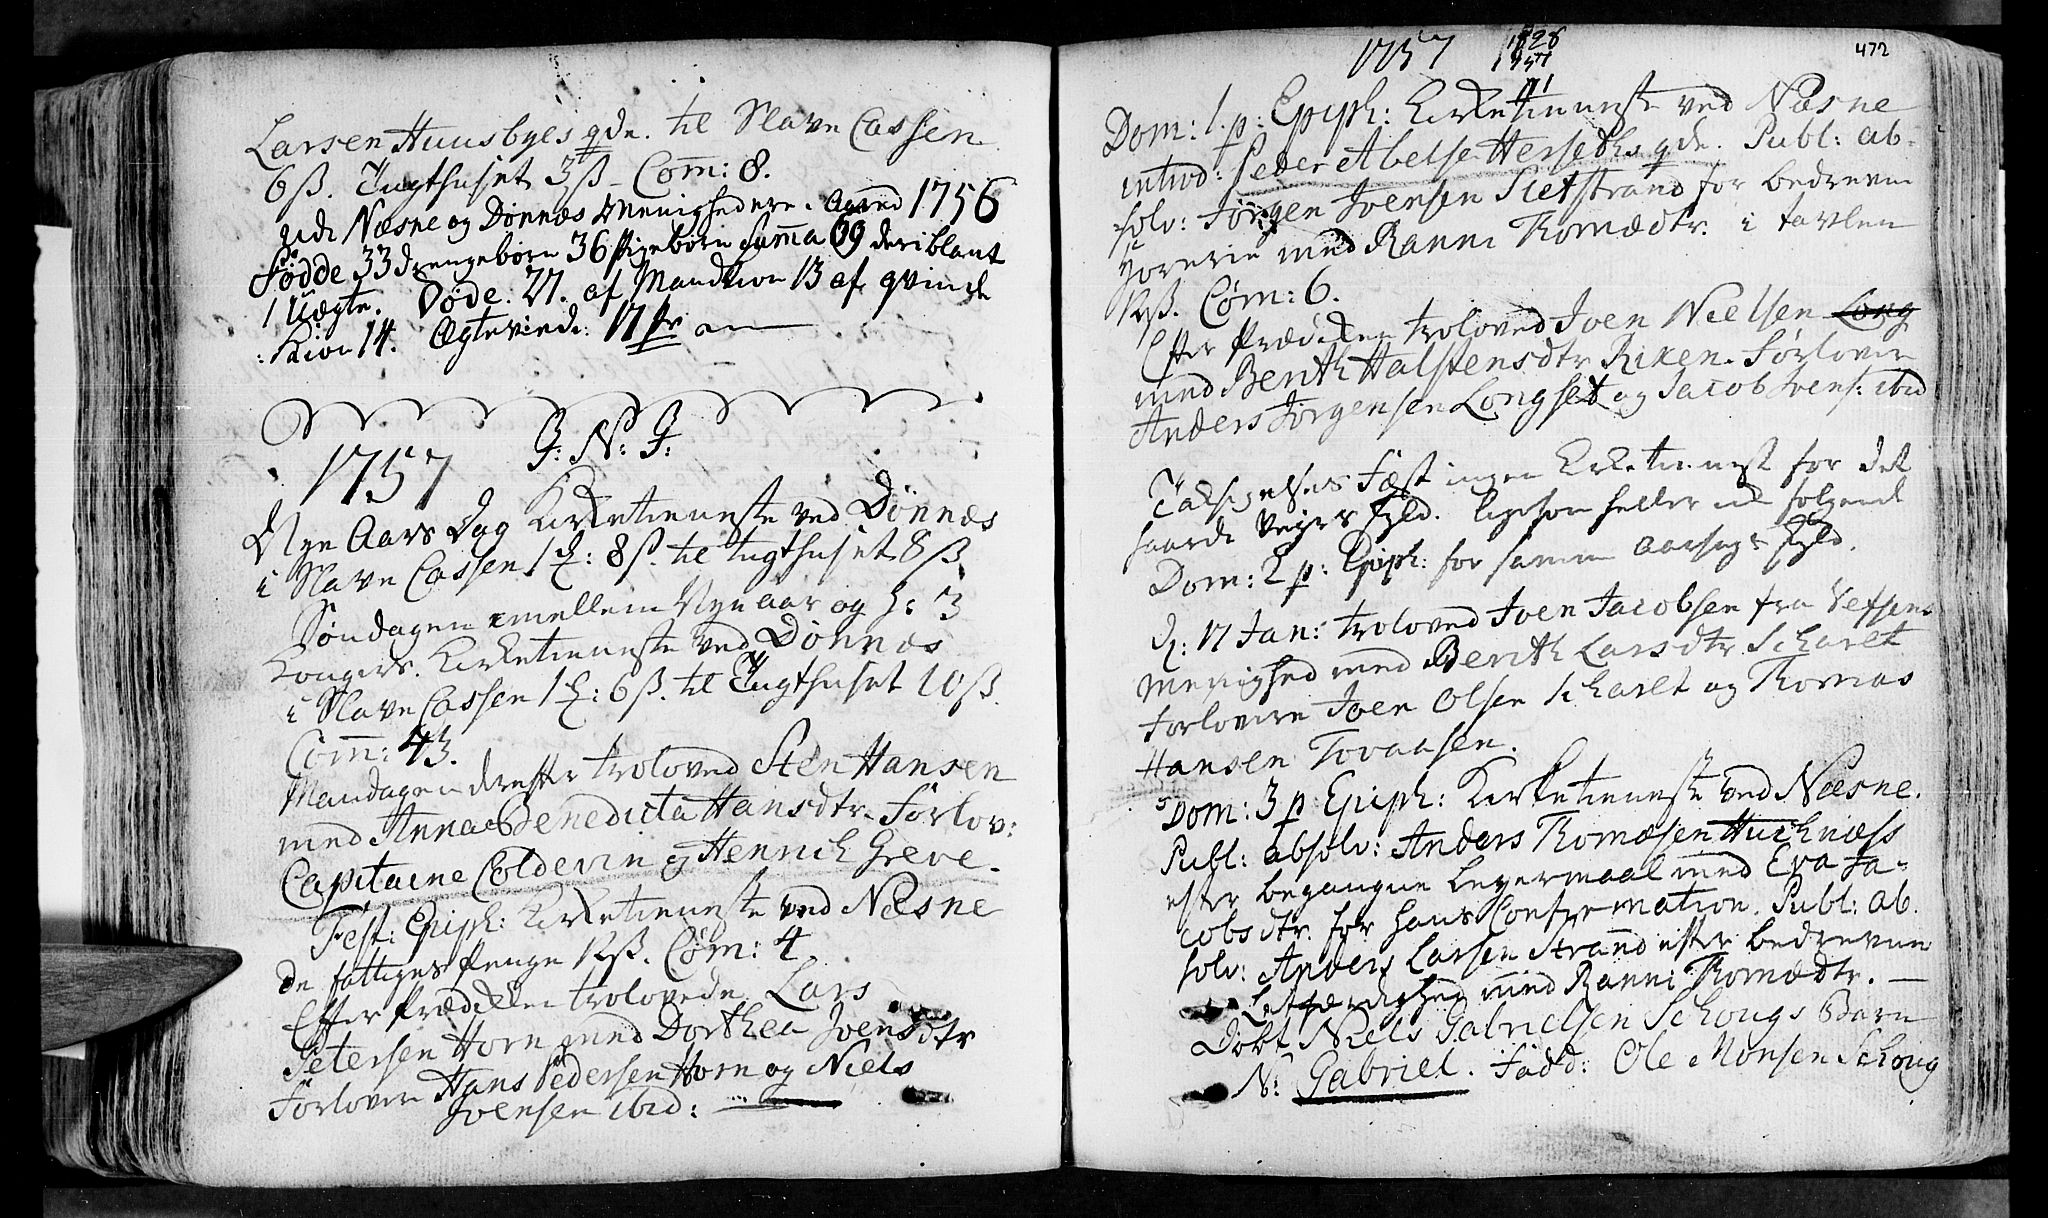 Larsen Huusbyes qde. til Slave Cassen
6 ß. Tugthuset 3 ß – Com̄: 8.
udi Næsne og Dønnæs Menighedere. 1756
Fødde 33 drengebørn 36 Pigebørn Sum̄a 69 deriblant
1 Uægte. Døde: 27. af Mandkion 13 af qvinde
:kion 14. Ægteviede: 17 Pr
1757 J: N: J:
Nye Aars Dag Kirketieneste ved Dønnæs
i Slave Cassen 1 : 8 ß. til Tugthuset 8 ß
Søndagen emellem Nyeaar og H: 3
Konger. Kirketieneste ved Dønnæs
i Slave Cassen 1 : 6 ß. til Tugthuset 10 ß.
Com̄: 43.
Mandagen derefter troloved Sten Hansen
med Anna Benedicta Hansdtr. Forlov:
Capitaine Coldevin og Henrich Greve.
Fest: Epiph: Kirketieneste ved Næsne
de fattiges Penge ß. Com̄: 4
Efter Prædiken trolovede Lars
Petersen Horn med Dorthea Joensdtr
Forlovere Hans Pedersen Horn og Niels
Joensen ibid:
1757 1828
1757
71
472
Dom: 1. p: Epiph: Kirketieneste ved Næsne
introd: Peder Abelsen Herseths qde. Publ: ab-
solv: Jørgen Joensen Sletstrand for bedreven
Horerie med Ranni Thomædtr. i tavlen
ß. Com̄: 6.
Efter Prædiken troloved Joen Nielsen Long
med Berith Halstensdtr Riken. Forlovere
Anders Jørgensen Longset og Jacob Joens: ibid
Tacksigelses Fæst ingen Kirketieneste for det
haarde Veyers skyld. ligesom heller ei følgende
Dom: 2 p: Epiph: for samme Aarsags skyld.
d: 17 Jan: troloved Joen Jacobsen fra Vefsens
Menighed med Berith Larsdtr Scharet
Forlovere Joen Olsen Scharet og Thomas
Hansen Tovaasen.
Dom: 3 p: Epiph: Kirketieneste ved Næsne.
Publ: absolv: Anders Thomæsen Huchnæss
efter begangne Leyermaal med Eva Ja-
cobsdtr. for hans Confirmation. Publ: ab.
solv: Anders Larsen Strand efter bedreven
Letfærdighed med Ranni Thomædtr. —
Døbt Niels Gabrielsen Schougs Barn
N: Gabriel. Fadd: Ole Monsen Schoug